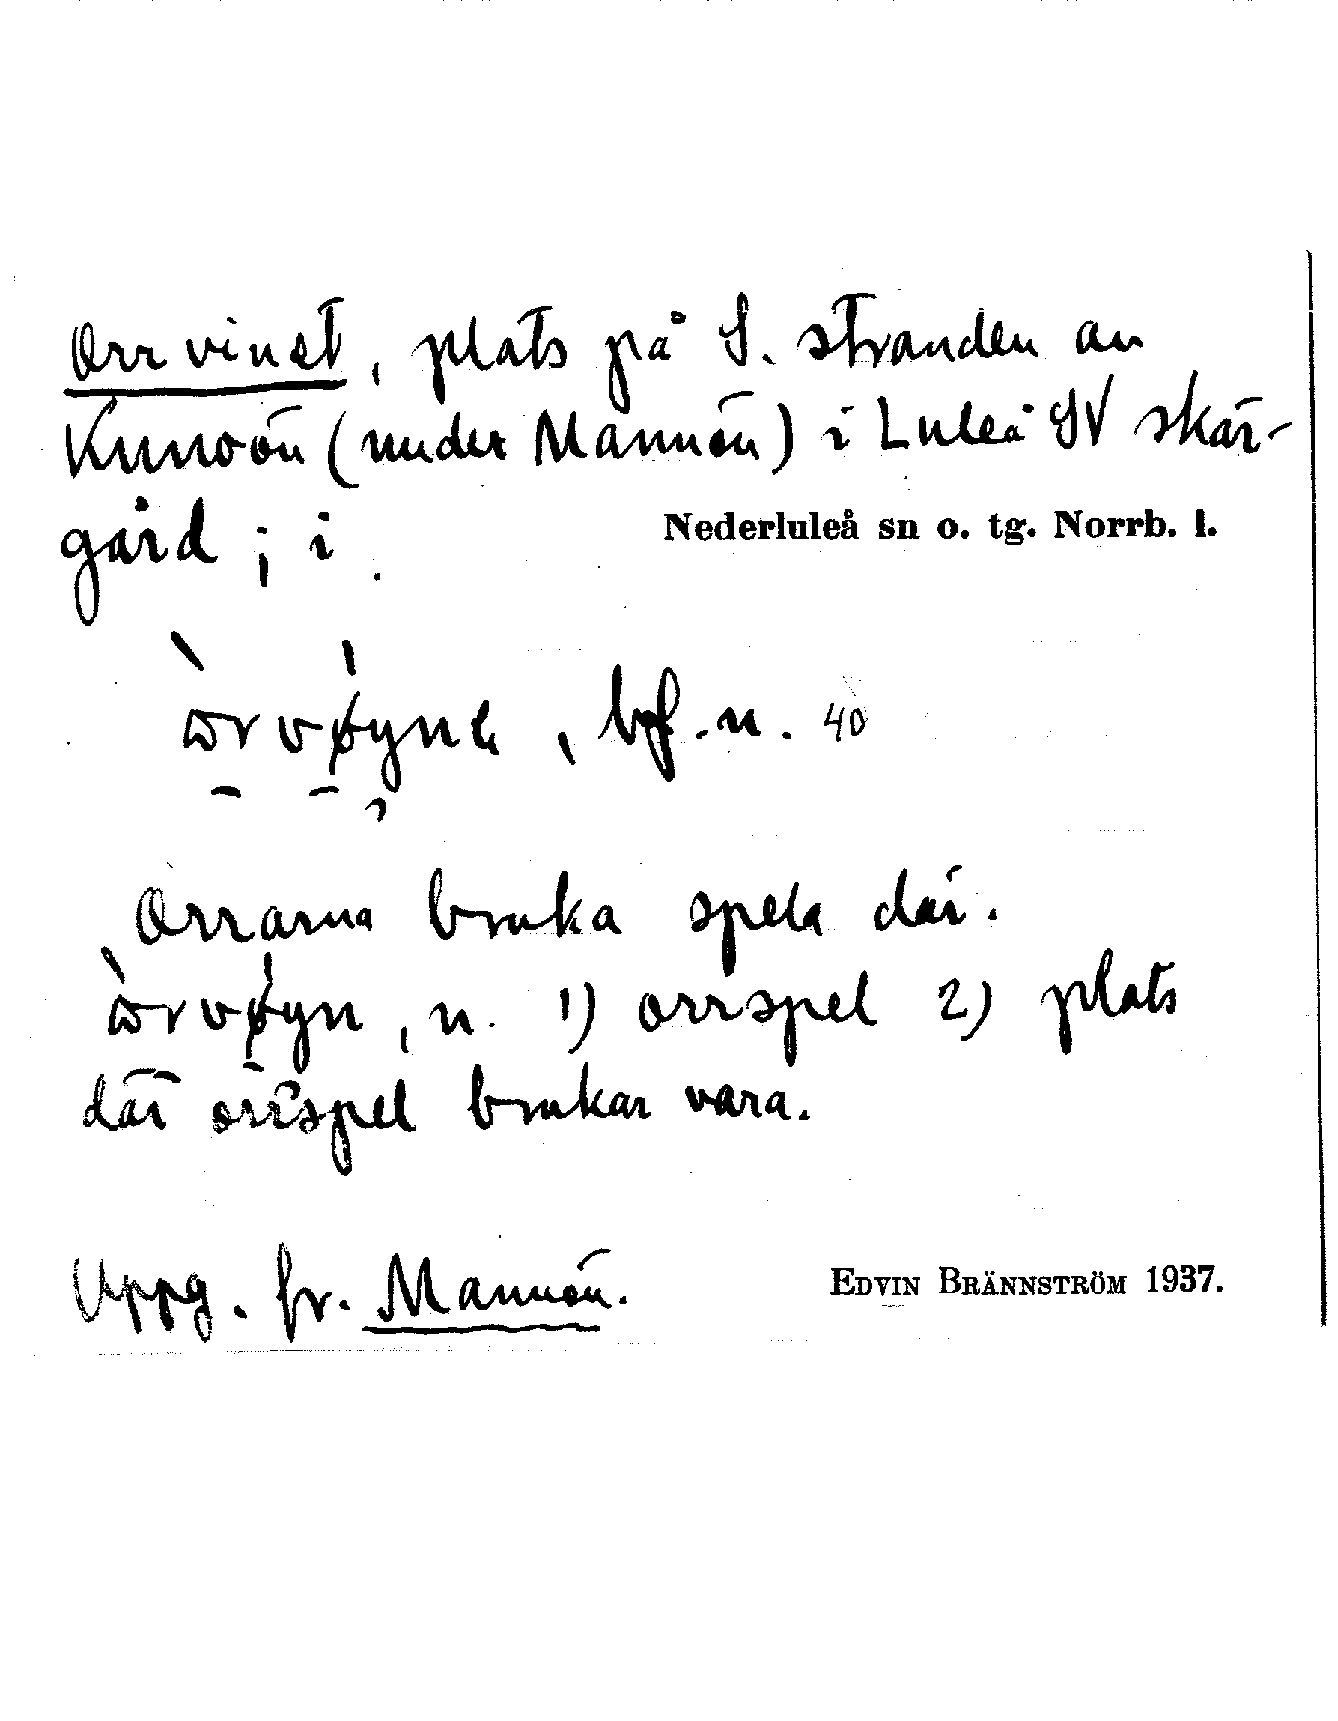 Orrvinst, plats på S. stranden av
Kunoön (under Mannön) i Luleå SV skär-
gård; i
Nederluleå sn o. tg. Norrb. l.
òrvǿyna, bf. n. 40
Orrarna bruka spela där.
òrvǿyn, n. 1) orrspel 2) plats
där orrspel brukar vara.
Uppg. fr. Mannön.
EDVIN BRÄNNSTRÖM 1937.